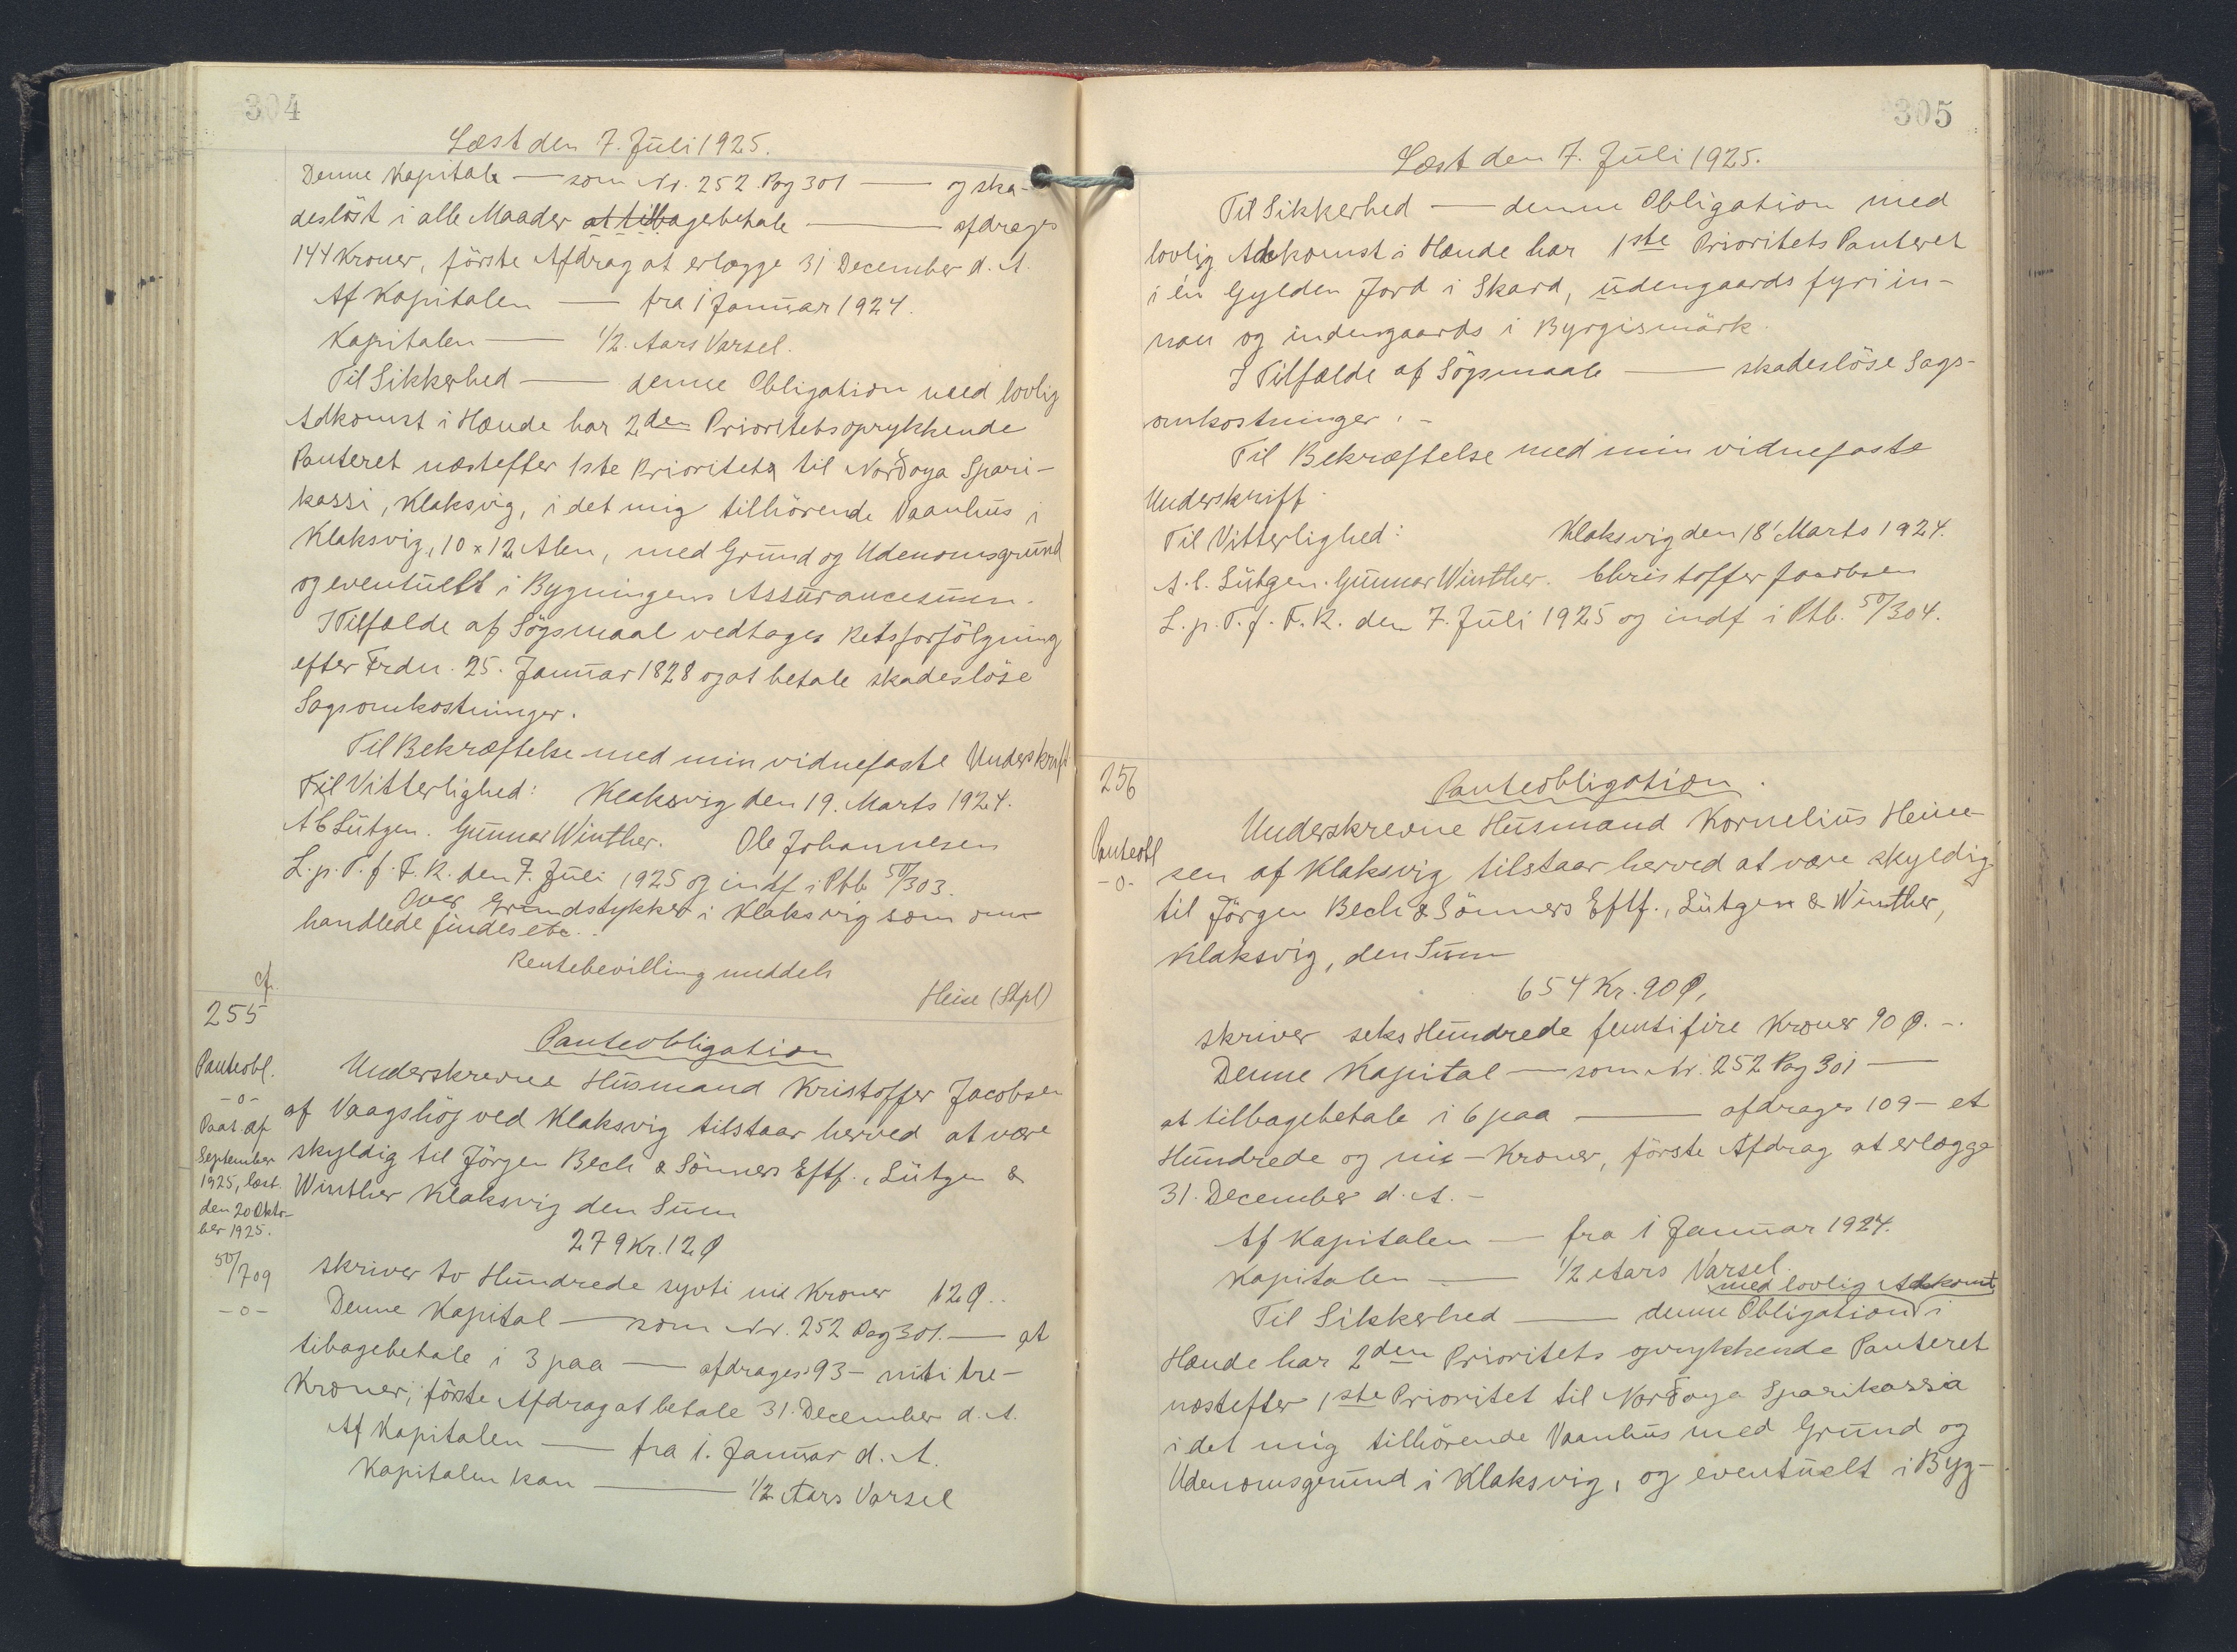 304
Læst den 7. Juli 1925.
Denne Kapital — som Nr. 252 Pag 301 — og ska-
deslöst i alle Maader at tilbagebetale — afdrages
144 Kroner, förste Afdrag at erlægge 31 December d. A.
Af Kapitalen — fra 1 Januar 1924.
Kapitalen — 1/2 Aars Varsel.
Til Sikkerhed — denne Obligation med lovlig
Adkomst i Hænde har 2den Prioritets oprykkende
Panteret næstefter 1ste Prioritet til Norðoya Spari-
kassi, Klaksvig, i det mig tilhörende Vaanhus i
Klaksvig, 10 x 12 Alen, med Grund og Udenomsgrund
og eventuelt i Bygningens Assurancesum.
I Tilfælde af Sögsmaal vedtages Retsforfölgning
efter Frdn. 25. Januar 1828 og at betale skadeslöse
Sagsomkostninger.
Til Bekræftelse med min vidnefaste Underskrift
Til Vitterlighed: Klaksvig den 19. Marts 1924.
A C Lütgen. Gunnar Winther. Ole Johannesen
L. p. T. f. F. R. den 7. Juli 1925 og indf i Ptb. 50/303.
Over Grundstykker i Klaksvig som om-
handlede findes etc.
Rentebevilling meddelt
Heise (Stpl)
cf.
255
Panteobl.
-o-
Paat. af
September
1925, læst.
den 20 Okto-
ber 1925.
50/709
-o-
Panteobligation
Underskrevne Husmand Kristoffer Jacobsen
af Vaagshöj ved Klaksvig tilstaar herved at være
skyldig til Jörgen Bech & Sönners Eftf., Lütgen &
Winther Klaksvig den Sum
279 Kr. 12 Ø
skriver to Hundrede syvti ni Kroner 12 Ø..
Denne Kapital — som Nr. 252 Pag 301. — at
tibagebetale i 3 paa — afdrages 93 - niti tre -
Kroner, förste Afdrag at betale 31. December d. A.
Af Kapitalen — fra 1. Januar d. A.
Kapitalen kan — 1/2 Aars Varsel
305
Læst den 7. Juli 1925.
Til Sikkerhed — denne Obligation med
lovlig Adkomst i Hænde har 1ste Prioritets Panteret
i én Gylden Jord i Skard, udengaards fyri in-
nan og indengaards i Byrgismörk.
I Tilfælde af Sögsmaale — skadeslöse Sags-
omkostninger. -
Til Bekræftelse med min vidnefaste
Underskrift.
Til Vitterlighed: Klaksvig den 18' Marts 1924.
A. C. Lütgen. Gunnar Winther. Christoffer Jacobsen
L. p. T. f. F. R. den 7. Juli 1925 og indf i Ptb. 50/304.
256
Panteobl
-o-
Panteobligation.
Underskrevne Husmand Kornelius Heine-
sen af Klaksvig tilstaar herved at være skyldig
til Jörgen Bech & Sönners Eftf., Lütgen & Winther,
Klaksvig, den Sum
654 Kr. 90 Ø,
skriver seks Hundrede femtifire Kroner 90 Ø. -.
Denne Kapital — som Nr. 252 Pag 301 —
at tilbagebetale i 6 paa — afdrages 109 - et
Hundrede og ni - Kroner, förste Afdrag at erlægge
31. December d. A. -
Af Kapitalen — fra 1 Januar 1924.
Kapitalen — 1/2 Aars Varsel.
med lovlig Adkomst
Til Sikkerhed — denne Obligation i
Hænde har 2den Prioritets oprykkende Panteret
næstefter 1ste Prioritet til Norðoya Sparikassa
i det mig tilhörende Vaanhus med Grund og
Udenomsgrund i Klaksvig, og eventuelt i Byg-